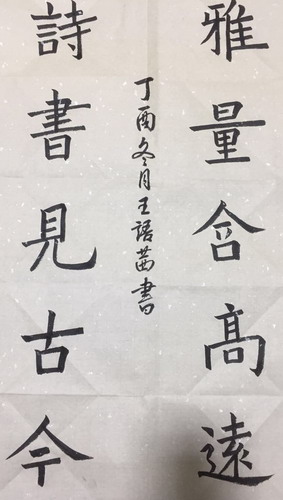 雅量含髙遠
詩書見古今
丁酉冬月王語茜書